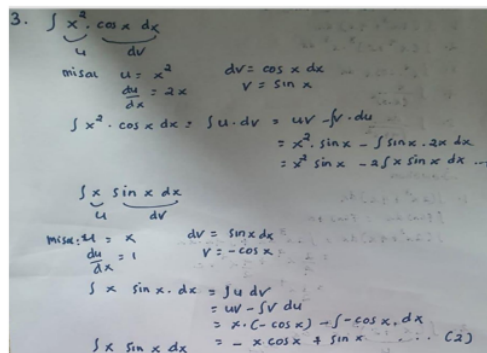 3. ∫ x². cos x dx
u dv
misal u = x² dv = cos x dx
du/dx = 2x v = sin x
∫ x² · cos x dx = ∫ u · dv = uv - ∫v · du
= x². sin x - ∫ sin x · 2x dx
= x² sin x - 2 ∫ x sin x dx ...
∫ x sin x dx
u dv
misal: u = x dv = sin x dx
du/dx = 1 v = -cos x
∫ x sin x · dx = ∫ u dv
= uv - ∫ v du
= x. (- cos x) - ∫ - cos x. dx
∫ x sin x dx = - x cos x + sin x ... (2)